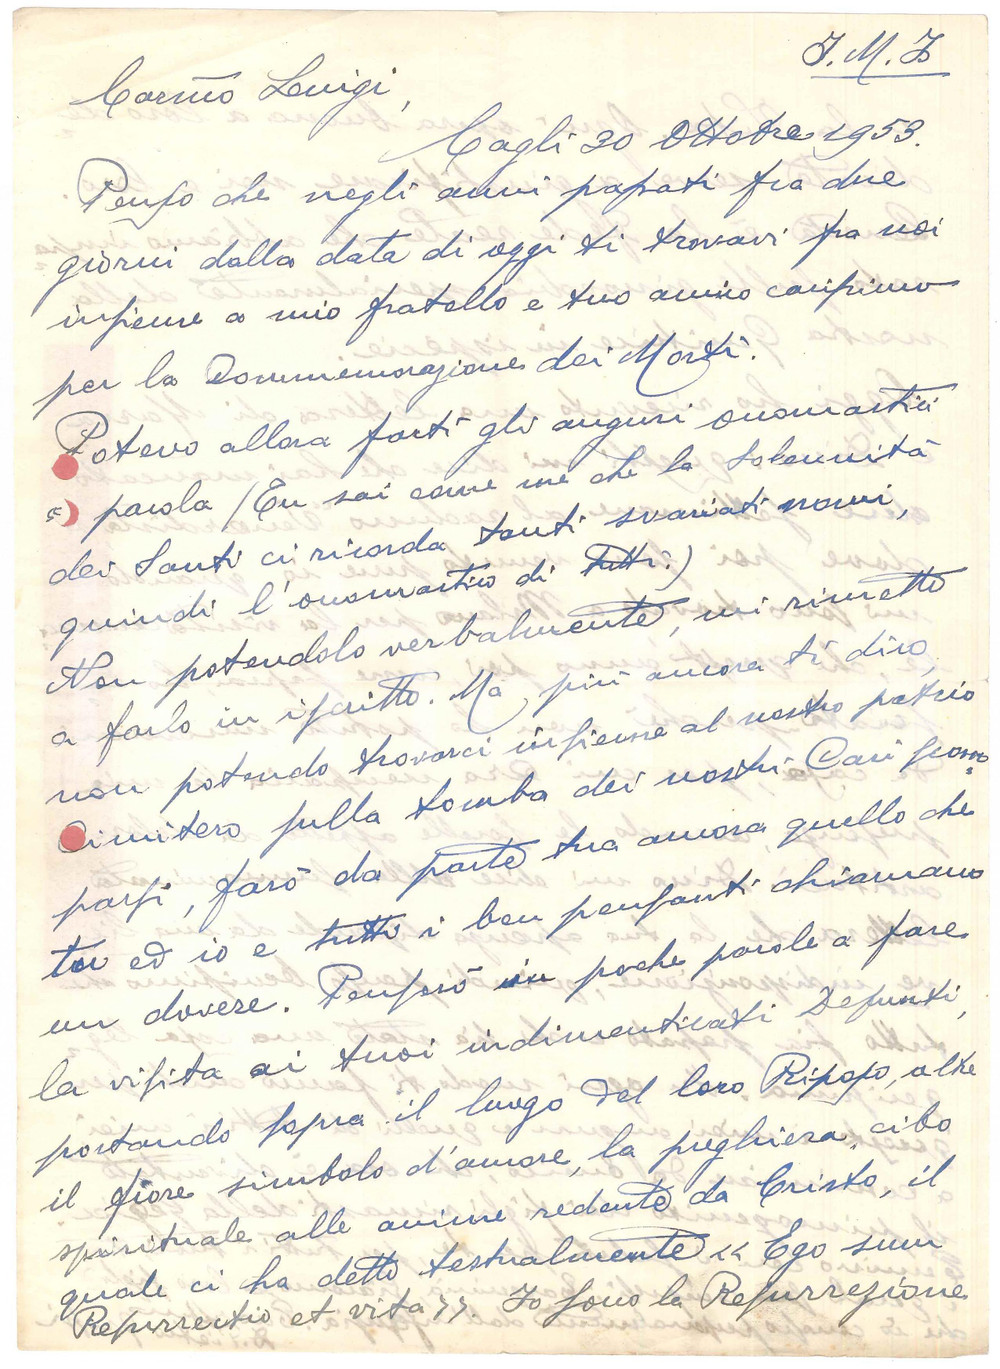 J. M. J
Carmo Luigi,
Cagli 30 Ottobre 1953.
Penso che negli anni passati fra due
giorni dalla data di oggi ti trovavi fra noi
insieme a mio fratello e tuo amico carissimo
per la Commemorazione dei Morti.
Potevo allora farti gli auguri onomastici
parola (Tu sai come me che la Solennità
dei Santi ci ricorda tanti svariati nomi,
quindi l'onomastico di tutti.)
Non potendolo verbalmente, mi rimetto
a farlo in iscritto. Ma più ancora ti dirò,
non potendo trovarci insieme al nostro patrio
Cimitero sulla tomba dei nostri Cari scom=
parsi, farò da parte tua ancora quello che
tu ed io e tutti i ben pensanti chiamano
un dovere. Penserò in poche parole a fare
la visita ai tuoi indimenticati Defunti,
portando sopra il luogo del loro Riposo, oltre
il fiore simbolo d'amore, la preghiera, cibo
spirituale alle anime redente da Cristo, il
quale ci ha detto testualmente << Ego sum
Resurrectio et vita >>. Io sono la Resurrezione